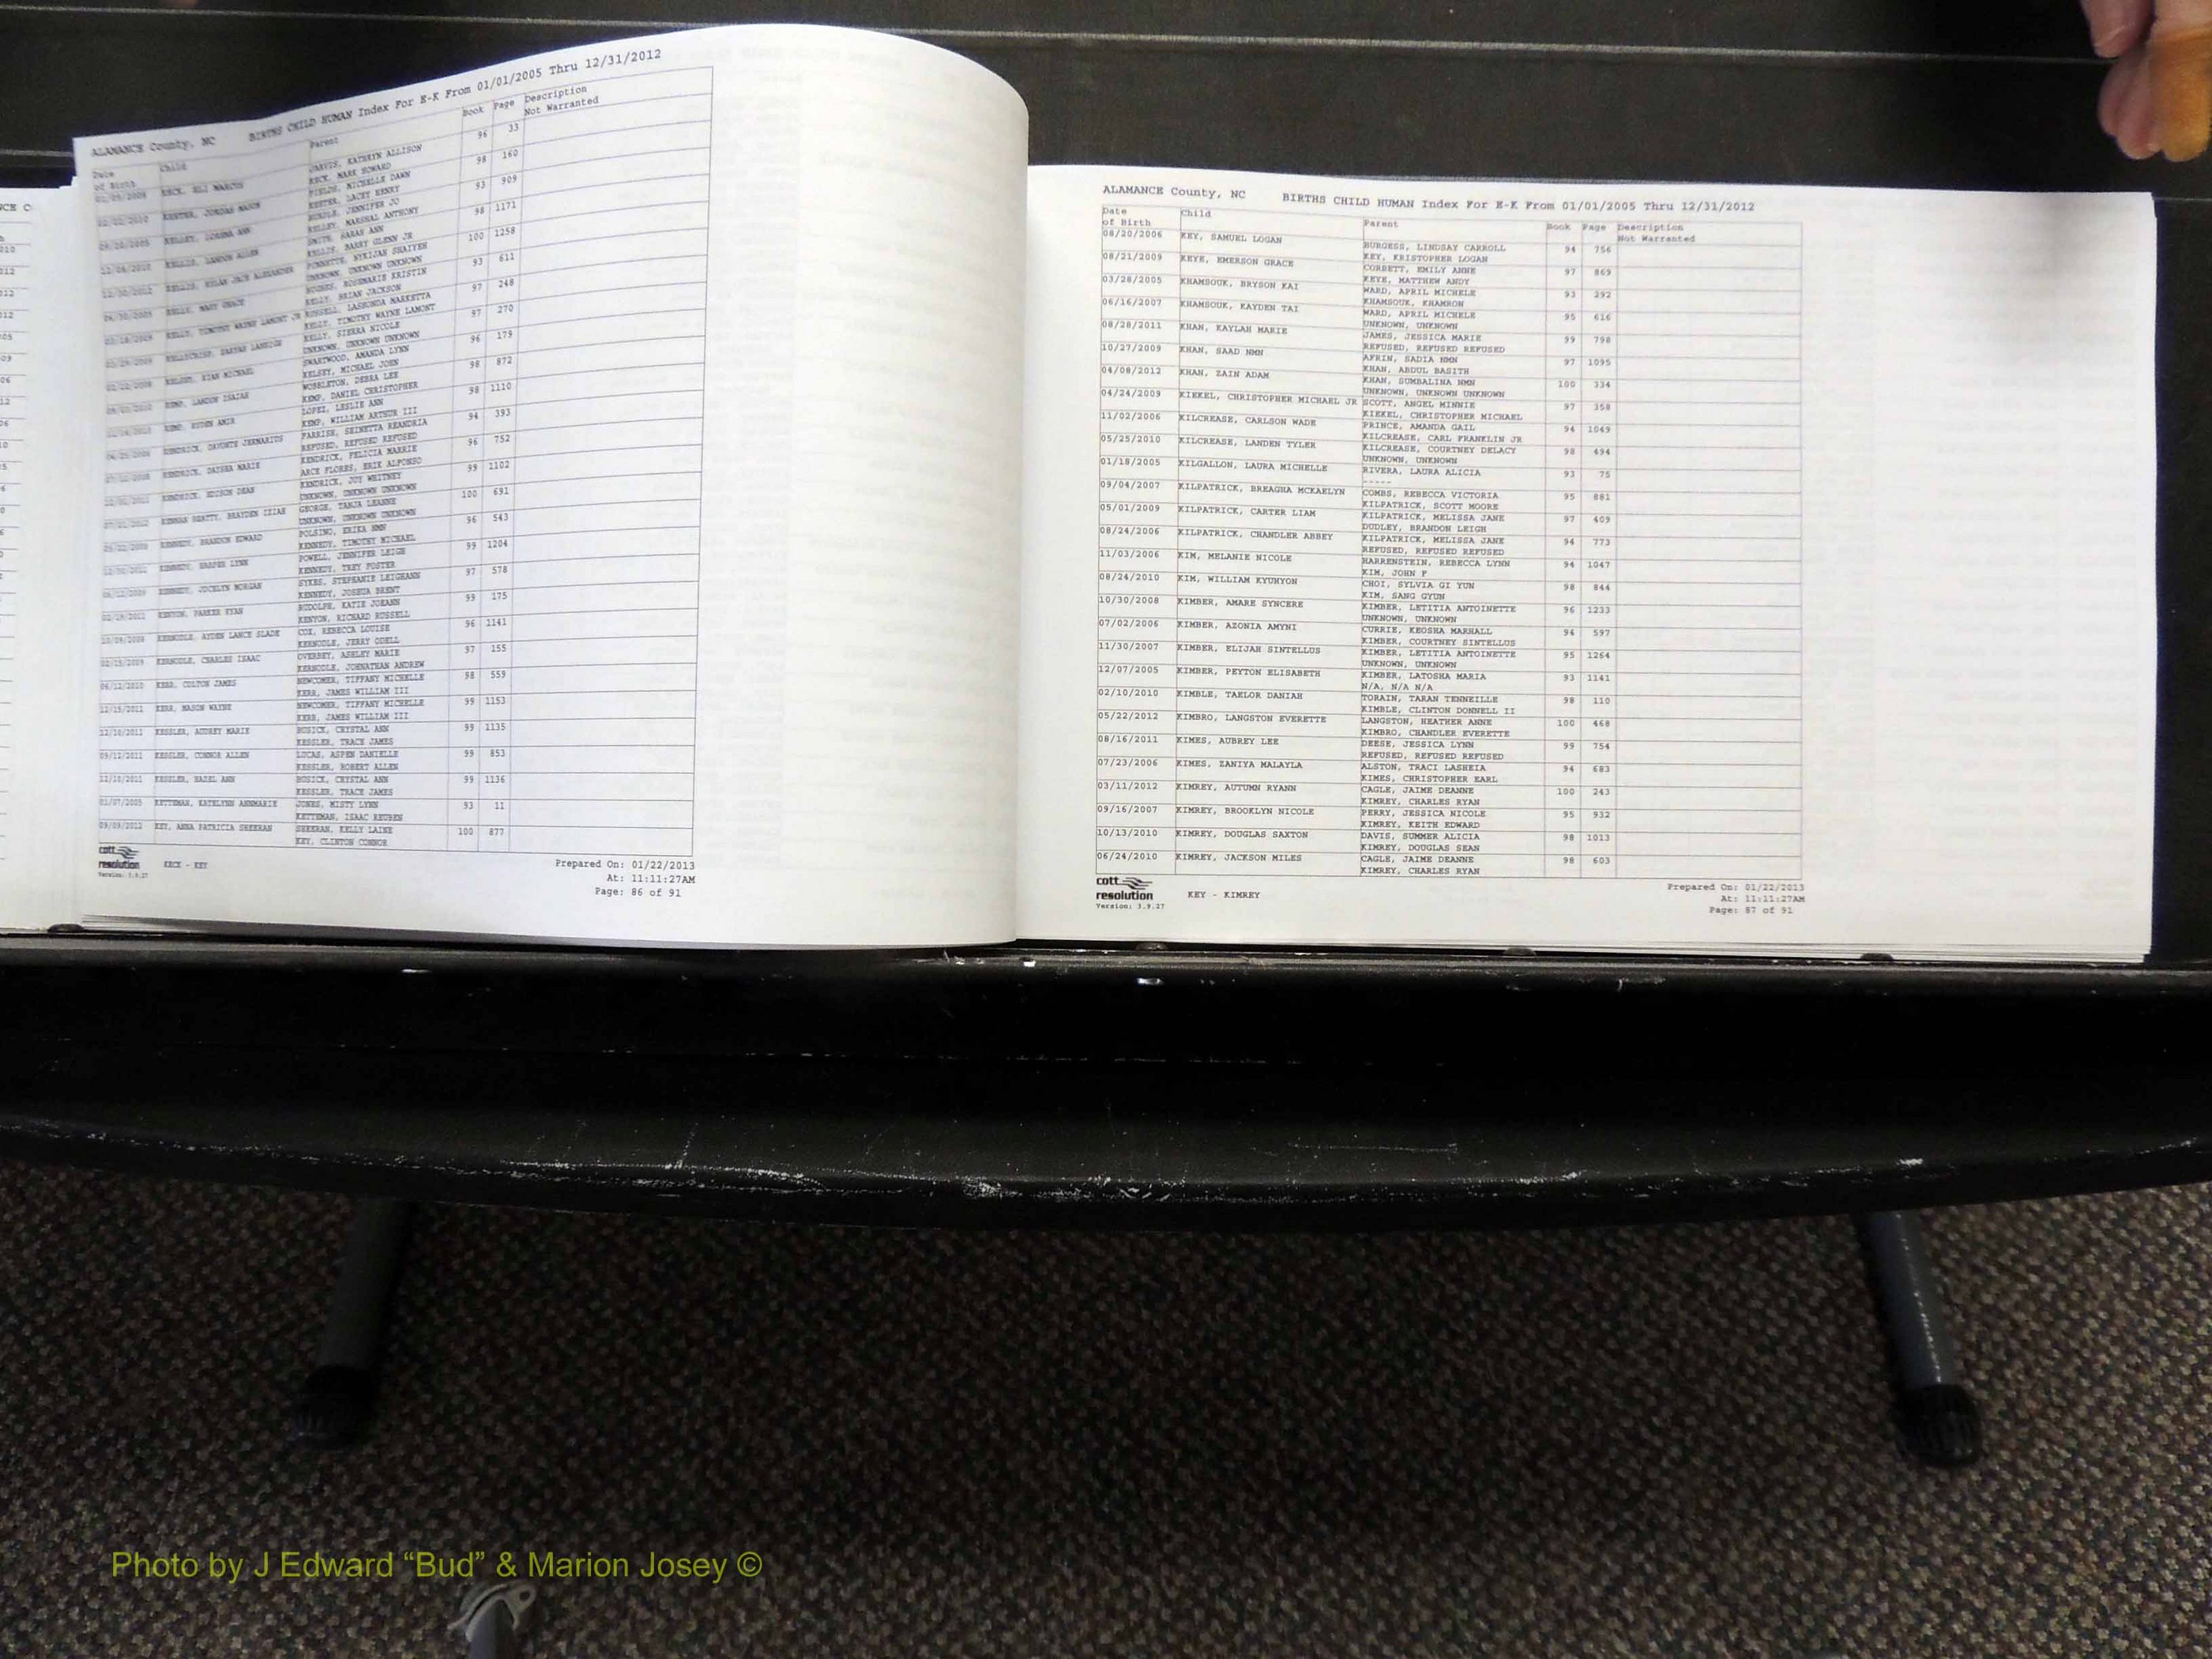 ALAMANCE County, NC BIRTHS CHILD HUMAN Index For E-K From 01/01/2005 Thru 12/31/2012
Date of Birth Child Parent Book Page Description Not Warranted
JARVIS, KATHRYN ALLISON 96 33
KECK, MARK HOWARD
FIELDS, MICHELLE DAWN 98 160
KESTER, LACEY HENRY
JENNIFER JO 93 909
KELLEY, MARSHAL ANTHONY
SMITH, SARAH ANN 98 1171
KELLIS, BARRY GLENN JR
100 1258
UNKNOWN, UNKNOWN UNKNOWN
HUGHES, ROSEMARIE KRISTIN 93 611
KELLY, BRIAN JACKSON
RUSSELL, LASHONDA MARKETTA 97 248
KELLY, TIMOTHY WAYNE LAMONT
KELLY, SIERRA NICOLE 97 270
UNKNOWN, UNKNOWN UNKNOWN
SWARTWOOD, AMANDA LYNN 96 179
KELSEY, MICHAEL JOHN
WOBBLETON, DEBRA LEE 98 872
KEMP, DANIEL CHRISTOPHER
LOPEZ, LESLIE ANN 98 1110
KEMP, WILLIAM ARTHUR III
94 393
REFUSED, REFUSED REFUSED
KENDRICK, DAYSHA MARIE KENDRICK, FELICIA MARRIE 96 752
ARCE FLORES, ERIK ALFONSO
KENDRICK, EDISON DEAN KENDRICK, JOY WHITNEY 99 1102
UNKNOWN, UNKNOWN UNKNOWN
GEORGE, TANJA LEANNE 100 691
UNKNOWN, UNKNOWN UNKNOWN
KENNEDY, BRANDON EDWARD POLSINO, ERIKA NMN 96 543
KENNEDY, TIMOTHY MICHAEL
KENNEDY, HARPER LYNN POWELL, JENNIFER LEIGH 99 1204
KENNEDY, TREY FOSTER
KENNEDY, JOCELYN MORGAN SYKES, STEPHANIE LEIGHANN 97 578
KENNEDY, JOSHUA BRENT
KENYON, PARKER RYAN RUDOLPH, KATIE JOEANN 99 175
KENYON, RICHARD RUSSELL
KERNODLE, AYDEN LANCE SLADE COX, REBECCA LOUISE 96 1141
KERNODLE, JERRY ODELL
02/15/2009 KERNODLE, CHARLES ISAAC OVERBEY, ASHLEY MARIE 97 155
KERNODLE, JOHNATHAN ANDREW
06/12/2010 KERR, COLTON JAMES NEWCOMER, TIFFANY MICHELLE 98 559
KERR, JAMES WILLIAM III
12/15/2011 KERR, MASON WAYNE NEWCOMER, TIFFANY MICHELLE 99 1153
KERR, JAMES WILLIAM III
12/10/2011 KESSLER, AUDREY MARIE BUSICK, CRYSTAL ANN 99 1135
KESSLER, TRACE JAMES
09/12/2011 KESSLER, CONNOR ALLEN LUCAS, ASPEN DANIELLE 99 853
KESSLER, ROBERT ALLEN
12/10/2011 KESSLER, HAZEL ANN BUSICK, CRYSTAL ANN 99 1136
KESSLER, TRACE JAMES
01/07/2005 KETTEMAN, KATELYNN ANNMARIE JONES, MISTY LYNN 93 11
KETTEMAN, ISAAC REUBEN
09/09/2012 KEY, ANNA PATRICIA SHEERAN SHEERAN, KELLY LAINE 100 877
KEY, CLINTON CONNOR
cott resolution
Version: 3.9.27
KECK - KEY
Prepared On: 01/22/2013
At: 11:11:27AM
Page: 86 of 91
ALAMANCE County, NC BIRTHS CHILD HUMAN Index For E-K From 01/01/2005 Thru 12/31/2012
Date of Birth Child Parent Book Page Description Not Warranted
08/20/2006 KEY, SAMUEL LOGAN BURGESS, LINDSAY CARROLL 94 756
KEY, KRISTOPHER LOGAN
08/21/2009 KEYE, EMERSON GRACE CORBETT, EMILY ANNE 97 869
KEYE, MATTHEW ANDY
03/28/2005 KHAMSOUK, BRYSON KAI WARD, APRIL MICHELE 93 292
KHAMSOUK, KHAMRON
06/16/2007 KHAMSOUK, KAYDEN TAI WARD, APRIL MICHELE 95 616
UNKNOWN, UNKNOWN
08/28/2011 KHAN, KAYLAH MARIE JAMES, JESSICA MARIE 99 798
REFUSED, REFUSED REFUSED
10/27/2009 KHAN, SAAD NMN AFRIN, SADIA NMN 97 1095
KHAN, ABDUL BASITH
04/08/2012 KHAN, ZAIN ADAM KHAN, SUMBALINA NMN 100 334
UNKNOWN, UNKNOWN UNKNOWN
04/24/2009 KIEKEL, CHRISTOPHER MICHAEL JR SCOTT, ANGEL MINNIE 97 358
KIEKEL, CHRISTOPHER MICHAEL
11/02/2006 KILCREASE, CARLSON WADE PRINCE, AMANDA GAIL 94 1049
KILCREASE, CARL FRANKLIN JR
05/25/2010 KILCREASE, LANDEN TYLER KILCREASE, COURTNEY DELACY 98 494
UNKNOWN, UNKNOWN
01/18/2005 KILGALLON, LAURA MICHELLE RIVERA, LAURA ALICIA 93 75
-----
09/04/2007 KILPATRICK, BREAGHA MCKAELYN COMBS, REBECCA VICTORIA 95 881
KILPATRICK, SCOTT MOORE
05/01/2009 KILPATRICK, CARTER LIAM KILPATRICK, MELISSA JANE 97 409
DUDLEY, BRANDON LEIGH
08/24/2006 KILPATRICK, CHANDLER ABBEY KILPATRICK, MELISSA JANE 94 773
REFUSED, REFUSED REFUSED
11/03/2006 KIM, MELANIE NICOLE HARRENSTEIN, REBECCA LYNN 94 1047
KIM, JOHN P
08/24/2010 KIM, WILLIAM KYUHYON CHOI, SYLVIA GI YUN 98 844
KIM, SANG GYUN
10/30/2008 KIMBER, AMARE SYNCERE KIMBER, LETITIA ANTOINETTE 96 1233
UNKNOWN, UNKNOWN
07/02/2006 KIMBER, AZONIA AMYNI CURRIE, KEOSHA MARHALL 94 597
KIMBER, COURTNEY SINTELLUS
11/30/2007 KIMBER, ELIJAH SINTELLUS KIMBER, LETITIA ANTOINETTE 95 1264
UNKNOWN, UNKNOWN
12/07/2005 KIMBER, PEYTON ELISABETH KIMBER, LATOSHA MARIA 93 1141
N/A, N/A N/A
02/10/2010 KIMBLE, TAELOR DANIAH TORAIN, TARAN TENNEILLE 98 110
KIMBLE, CLINTON DONNELL II
05/22/2012 KIMBRO, LANGSTON EVERETTE LANGSTON, HEATHER ANNE 100 468
KIMBRO, CHANDLER EVERETTE
08/16/2011 KIMES, AUBREY LEE DEESE, JESSICA LYNN 99 754
REFUSED, REFUSED REFUSED
07/23/2006 KIMES, ZANIYA MALAYLA ALSTON, TRACI LASHEIA 94 683
KIMES, CHRISTOPHER EARL
03/11/2012 KIMREY, AUTUMN RYANN CAGLE, JAIME DEANNE 100 243
KIMREY, CHARLES RYAN
09/16/2007 KIMREY, BROOKLYN NICOLE PERRY, JESSICA NICOLE 95 932
KIMREY, KEITH EDWARD
10/13/2010 KIMREY, DOUGLAS SAXTON DAVIS, SUMMER ALICIA 98 1013
KIMREY, DOUGLAS SEAN
06/24/2010 KIMREY, JACKSON MILES CAGLE, JAIME DEANNE 98 603
KIMREY, CHARLES RYAN
cott resolution
Version: 3.9.27
KEY - KIMREY
Prepared On: 01/22/2013
At: 11:11:27AM
Page: 87 of 91
Photo by J Edward “Bud” & Marion Josey ©